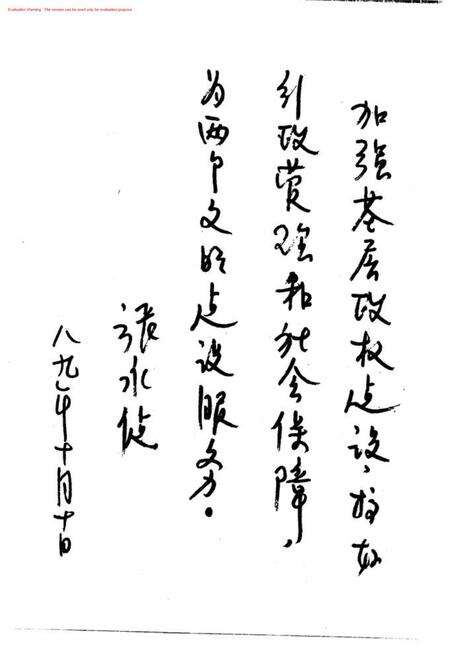 Evaluation Warning : The version can be used only for evaluation purpose
加强基层政权建设，搞好
行政管理和社会保障，
为两个文明建设服务。
張
八九年十月十日